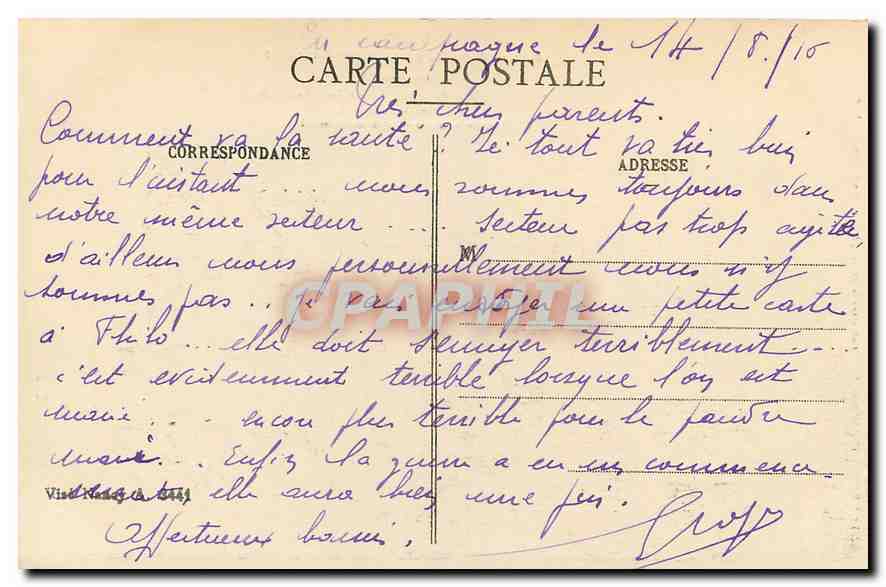 En campagne le 14/8/16
CARTE POSTALE
Très chers parents.
Comment va la santé ? Ici tout va très bien
CORRESPONDANCE
ADRESSE
pour l'instant .... nous sommes toujours dans
notre même secteur .... secteur pas trop agité,
d'ailleurs nous personnellement nous n'y
M
sommes pas .. je vais envoyer une petite carte
CPAPHIL
à Philo ... elle doit s'ennuyer terriblement ....
c'est evidemment terrible lorsque l'on est
marié ... encore plus terrible pour le
marié ... Enfin la guerre a eu un commence-
Visé Nancy
elle aura bien une fin.
Affectueux baisers.